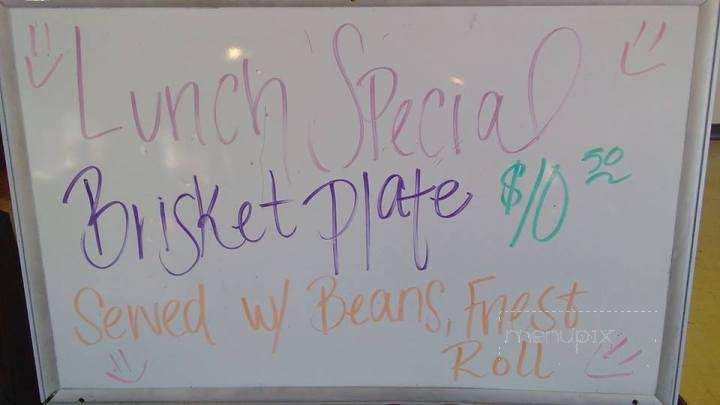 Lunch Special
Brisket Plate $10 50
Served w/ Beans, Fries +
menupix
Roll